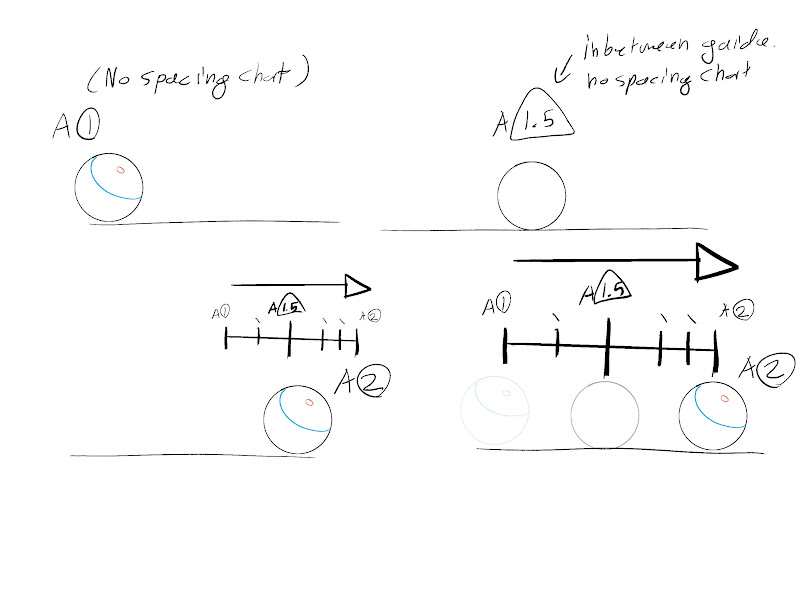 (No spacing chart)
A 1
inbetween guide.
no spacing chart
A 1.5
A1
A 1.5
A 2
A 2
A1
A 1.5
A 2
A 2